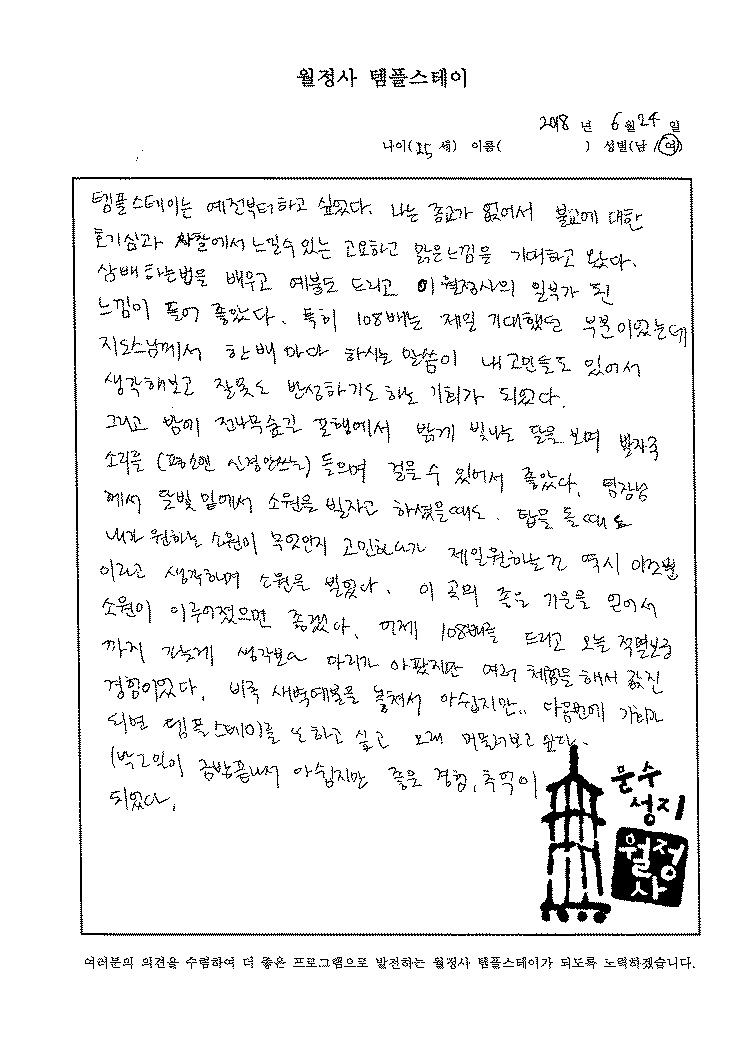 월정사 템플스테이
2018 년 6월 24 일
나이(25 세) 이름( ) 성별(남 / 여)
템플스테이는 예전부터 하고 싶었다. 나는 종교가 없어서 불교에 대한
호기심과 사찰에서 느낄수 있는 고요하고 맑은느낌을 기대하고 왔다.
삼배 하는법을 배우고 예불도 드리고 이 월정사의 일부가 된
느낌이 들어 좋았다. 특히 108배는 제일 기대했던 부분이었는데
지도스님께서 한 배 마다 하시는 말씀이 내 고민들도 있어서
생각해보고 잘못도 반성하기도 하는 기회가 되었다.
그리고 밤에 전나무숲길 포행에서 밝게 빛나는 달을 보며 발자국
소리를 (평소엔 신경안쓰는) 들으며 걸을 수 있어서 좋았다. 팀장님
께서 달빛 밑에서 소원을 빌자고 하셨을때도. 탑을 돌 때도
내가 원하는 소원이 무엇인지 고민하다가 제일원하는건 역시
이라고 생각하며 소원을 빌었다. 이 곳의 좋은 기운을 얻어서
소원이 이루어졌으면 좋겠다. 어제 108배를 드리고 오늘 적멸보궁
까지 가는게 생각보다 다리가 아팠지만 여러 체험을 해서 값진
경험이었다. 비록 새벽예불을 놓쳐서 아쉽지만.. 다음번에 기회가
되면 템플스테이를 또 하고 싶고 오래 머물러보고 싶다.
1박2일이 금방끝나서 아쉽지만 좋은 경험, 추억이
되었다.
문수
성지
월정
사
여러분의 의견을 수렴하여 더 좋은 프로그램으로 발전하는 월정사 템플스테이가 되도록 노력하겠습니다.